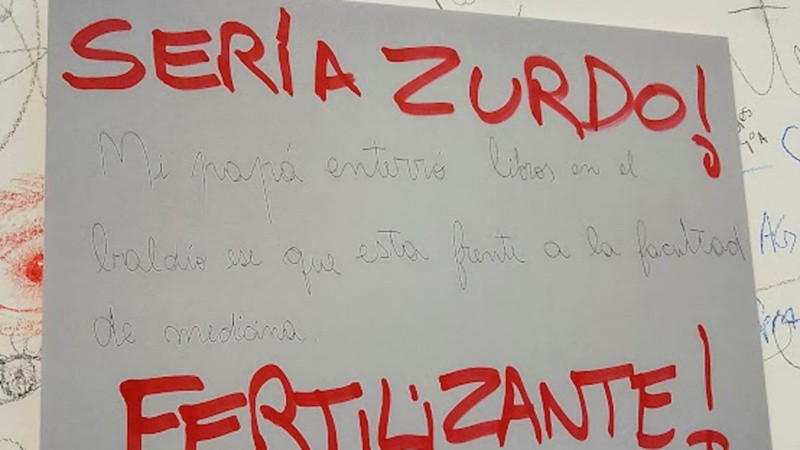 SERÍA ZURDO!
Mi papá enterró libros en el
baldío ese que esta frente a la facultad
de medicina.
FERTILIZANTE!